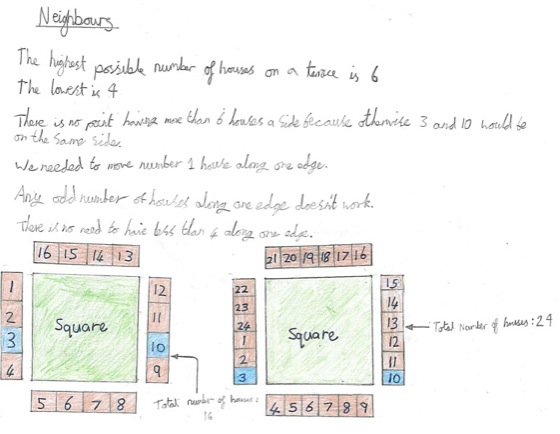 Neighbours
The highest possible number of houses on a terrace is 6
The lowest is 4
There is no point having more than 6 houses a side because otherwise 3 and 10 would be
on the same side.
We needed to move number 1 house along one edge.
Any odd number of houses along one edge doesn't work.
There is no need to have less than 4 along one edge.
16 15 14 13
1
2
3
4
Square
12
11
10
9
5 6 7 8
Total number of houses:
16
21 20 19 18 17 16
22
23
24
1
2
3
Square
15
14
13
12
11
10
Total number of houses: 24
4 5 6 7 8 9